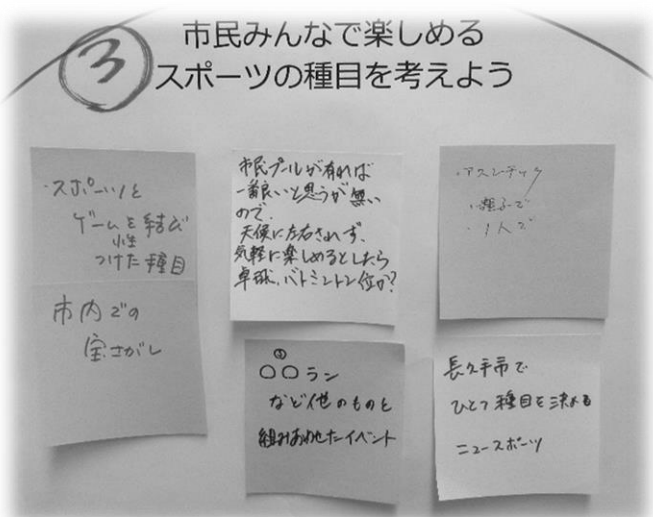 ③
市民みんなで楽しめる
スポーツの種目を考えよう
・スポーツと
ゲームを結び
性
つけた種目
市内での
宝さがし
市民プールが有れば
一番良いと思うが無い
ので、
天候に左右されず、
気軽に楽しめるとしたら
卓球、バトミントン位か?
・アスレチック
・親子で
・1人で
③
○○ラン
など他のものと
組みあわせたイベント
長久手市で
ひとつ種目を決める
ニュースポーツ